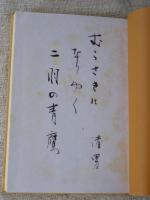 むらさきに
なりゆく
二羽の青鷹